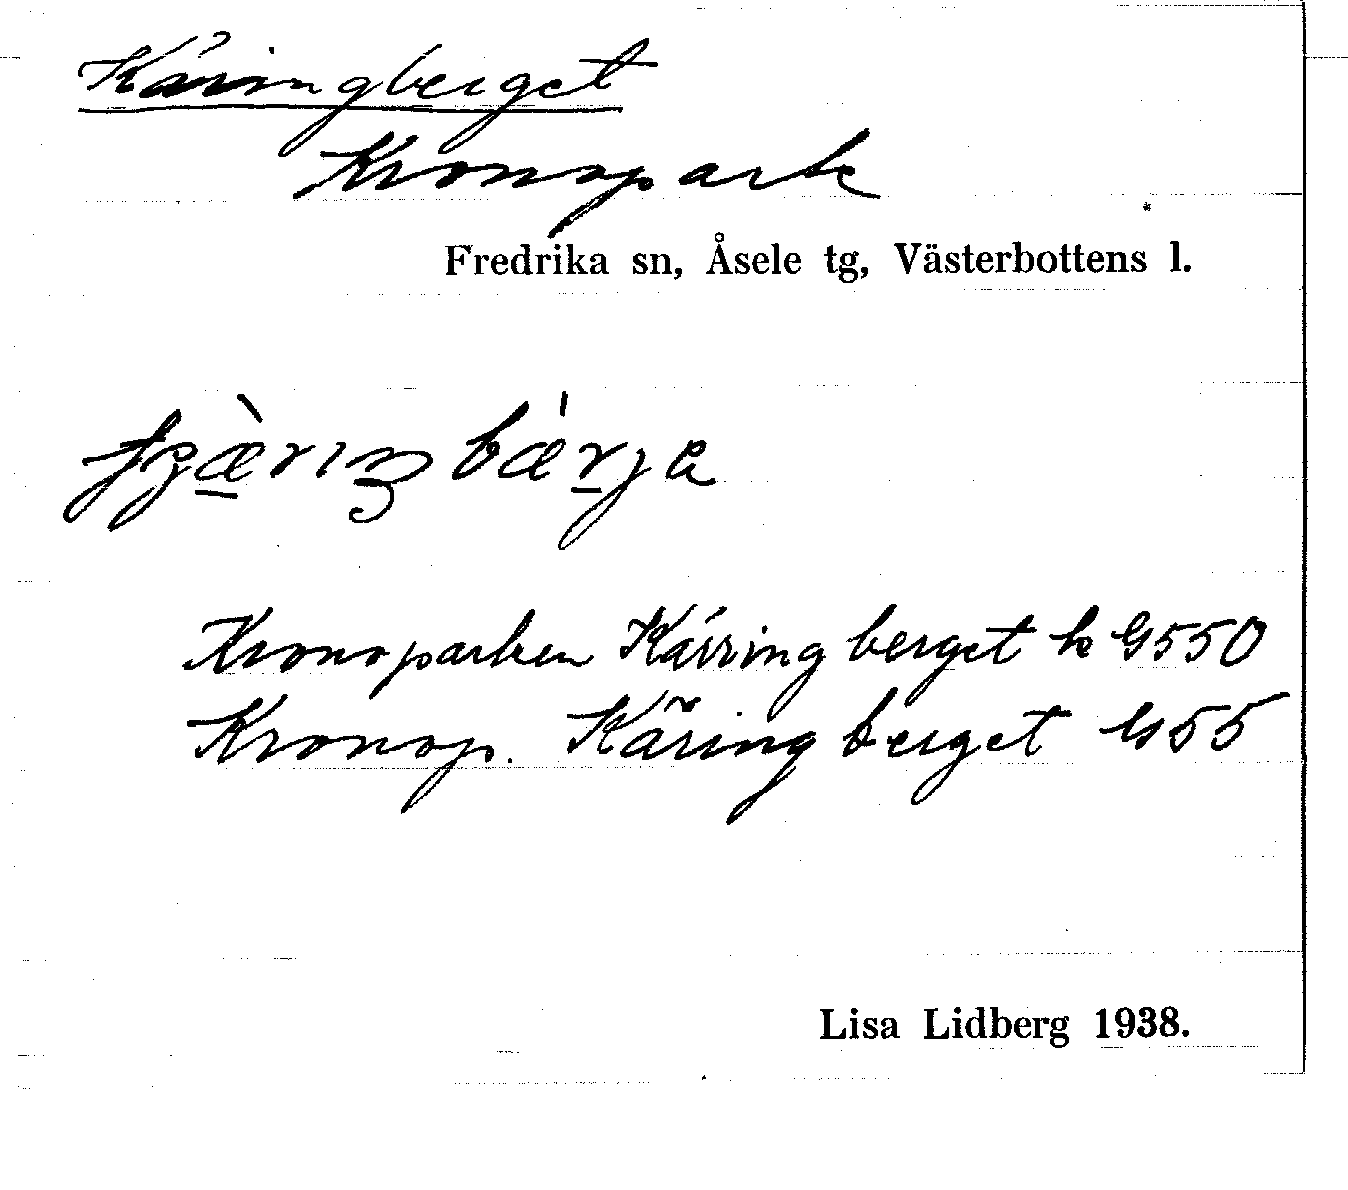 Käringberget
Kronopark
Fredrika sn, Åsele tg, Västerbottens l.
Kronoparken Kärringberget k G550
Kronop. Käringberget G55
Lisa Lidberg 1938.